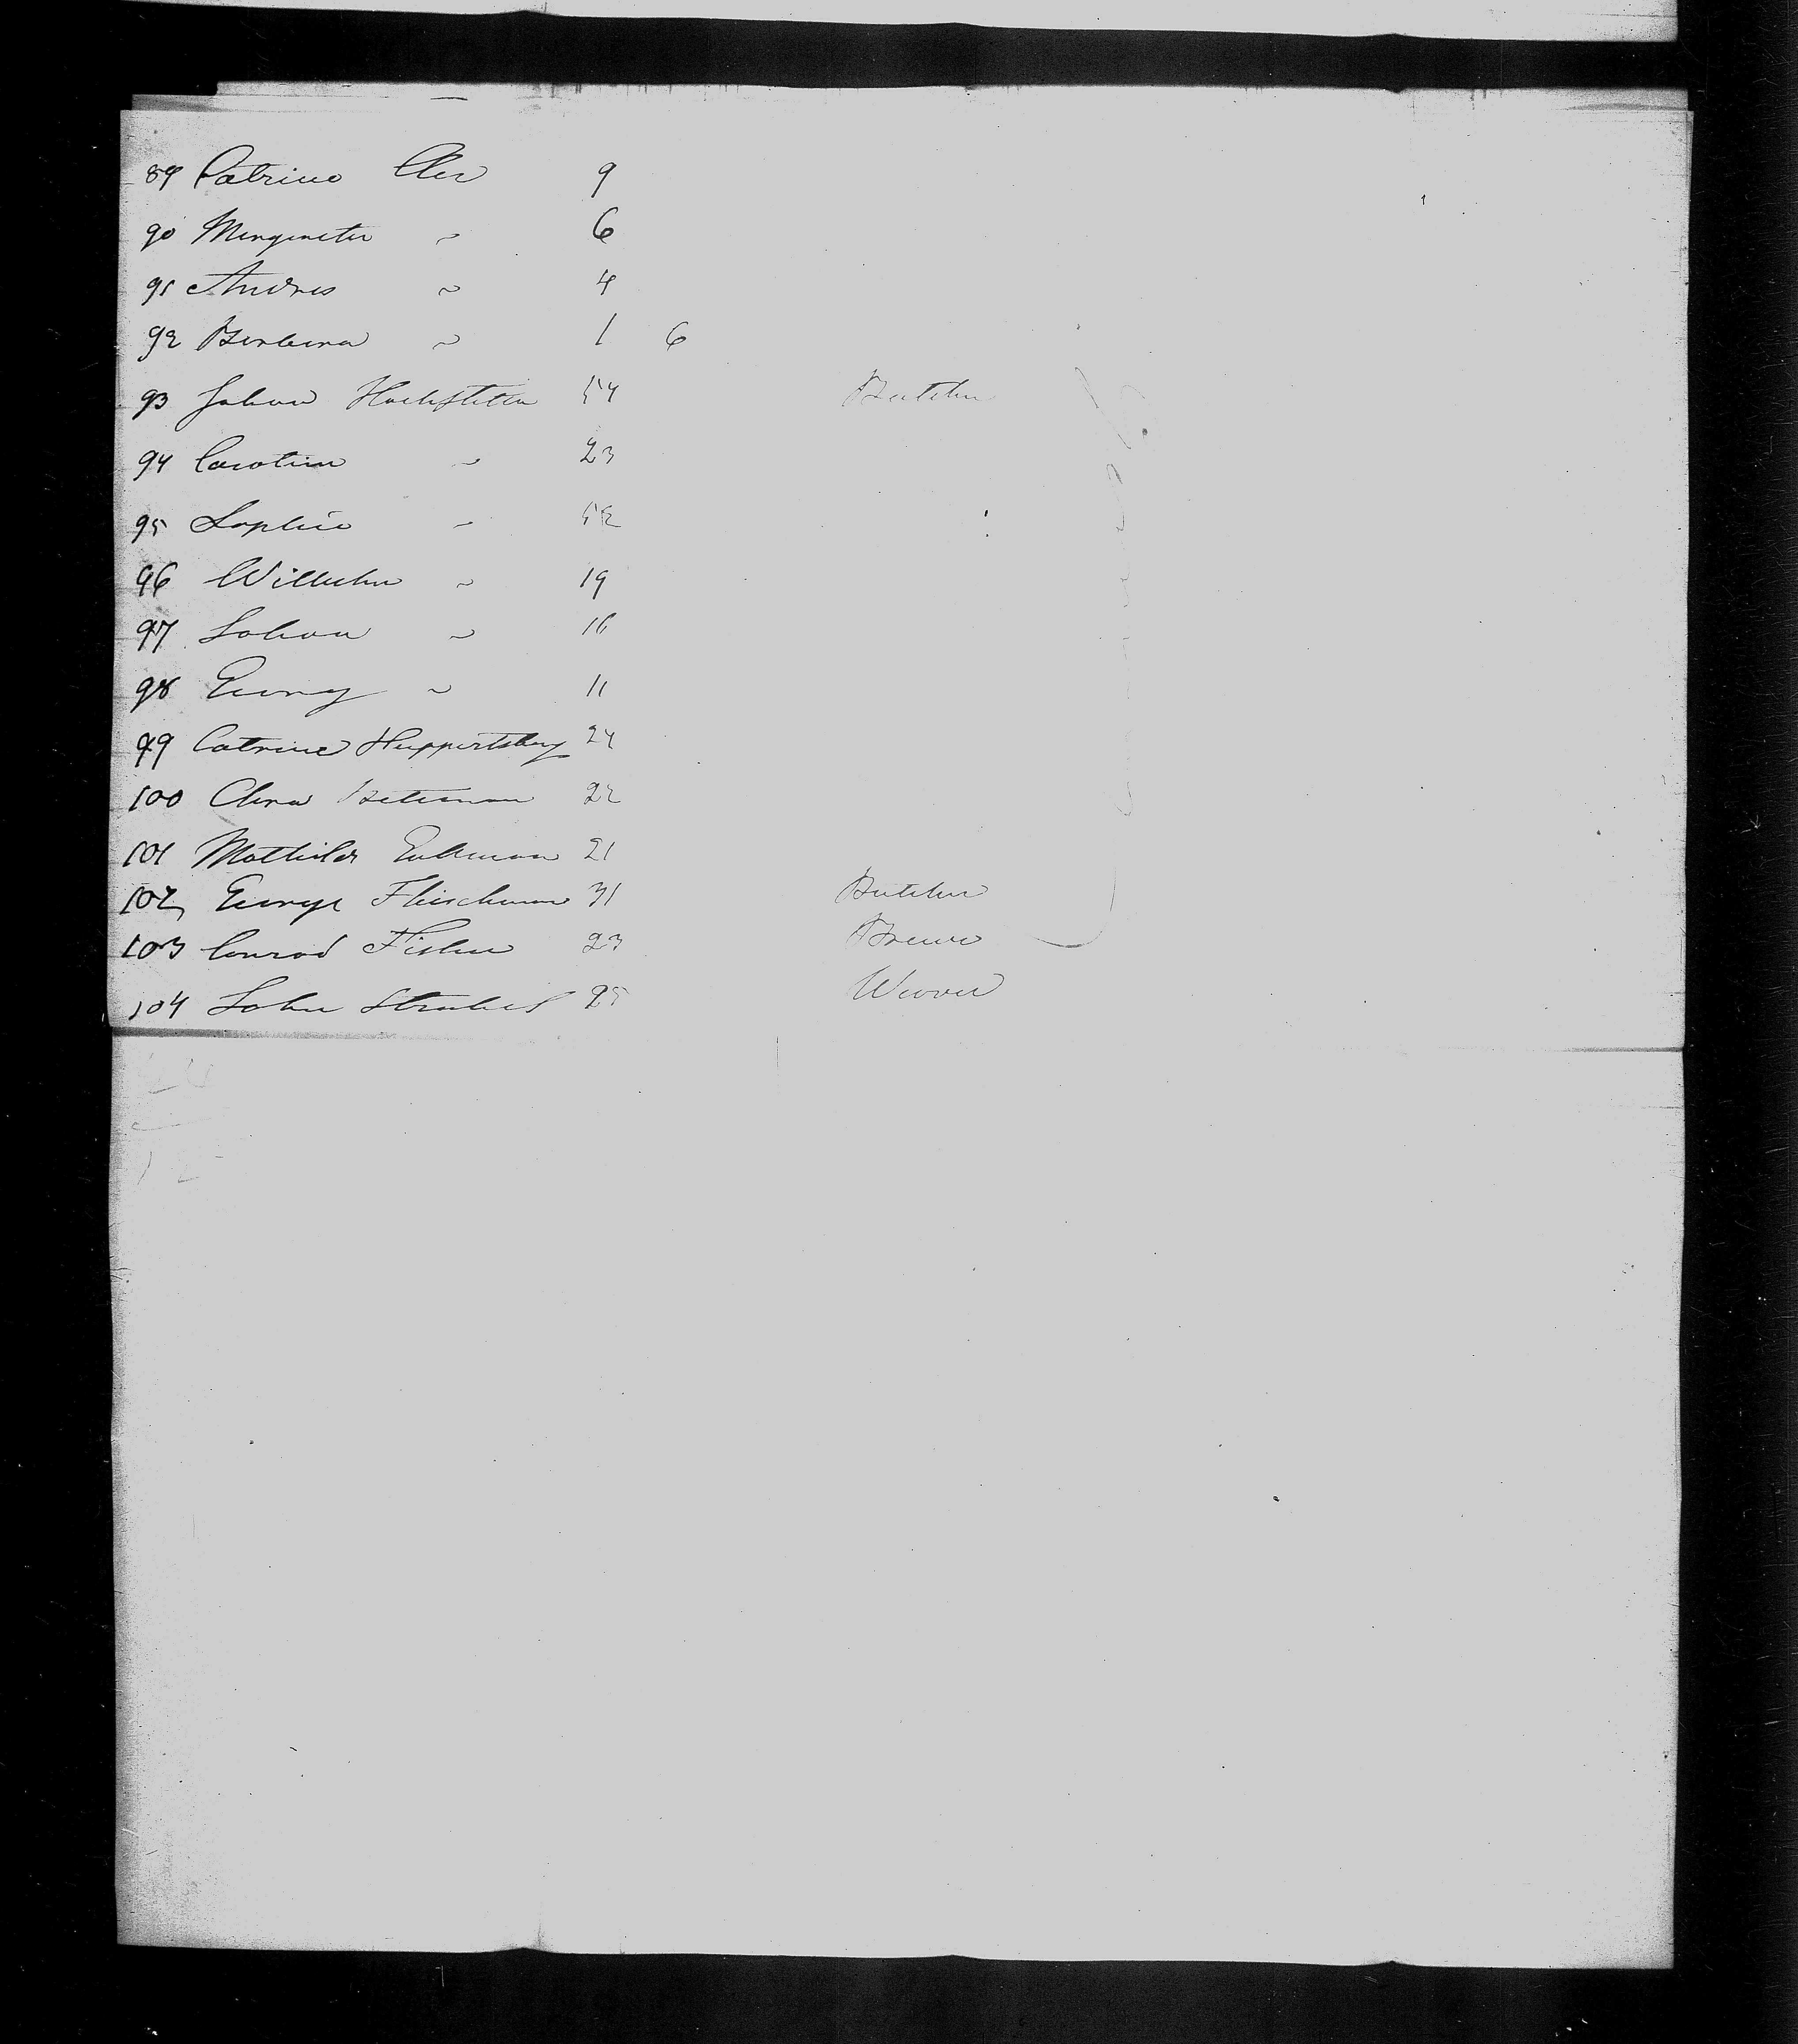 89 Catrine Cler 9
90 Margareta ~ 6
91 Andres ~ 4
92 Barbara ~ 1 6
93 Johan Hochstetter 54 Butcher
94 Carolina ~ 23
95 Sophie ~ 52
96 Wilhelm ~ 19
97 Johan ~ 16
98 Georg ~ 11
99 Catrine Huppertsberg 24
100 Clara 22
101 Mathilda 21
102 George Fleischman 31 Butcher
103 Conrad Fisher 23 Brewer
104 John Strubel 25 Weaver